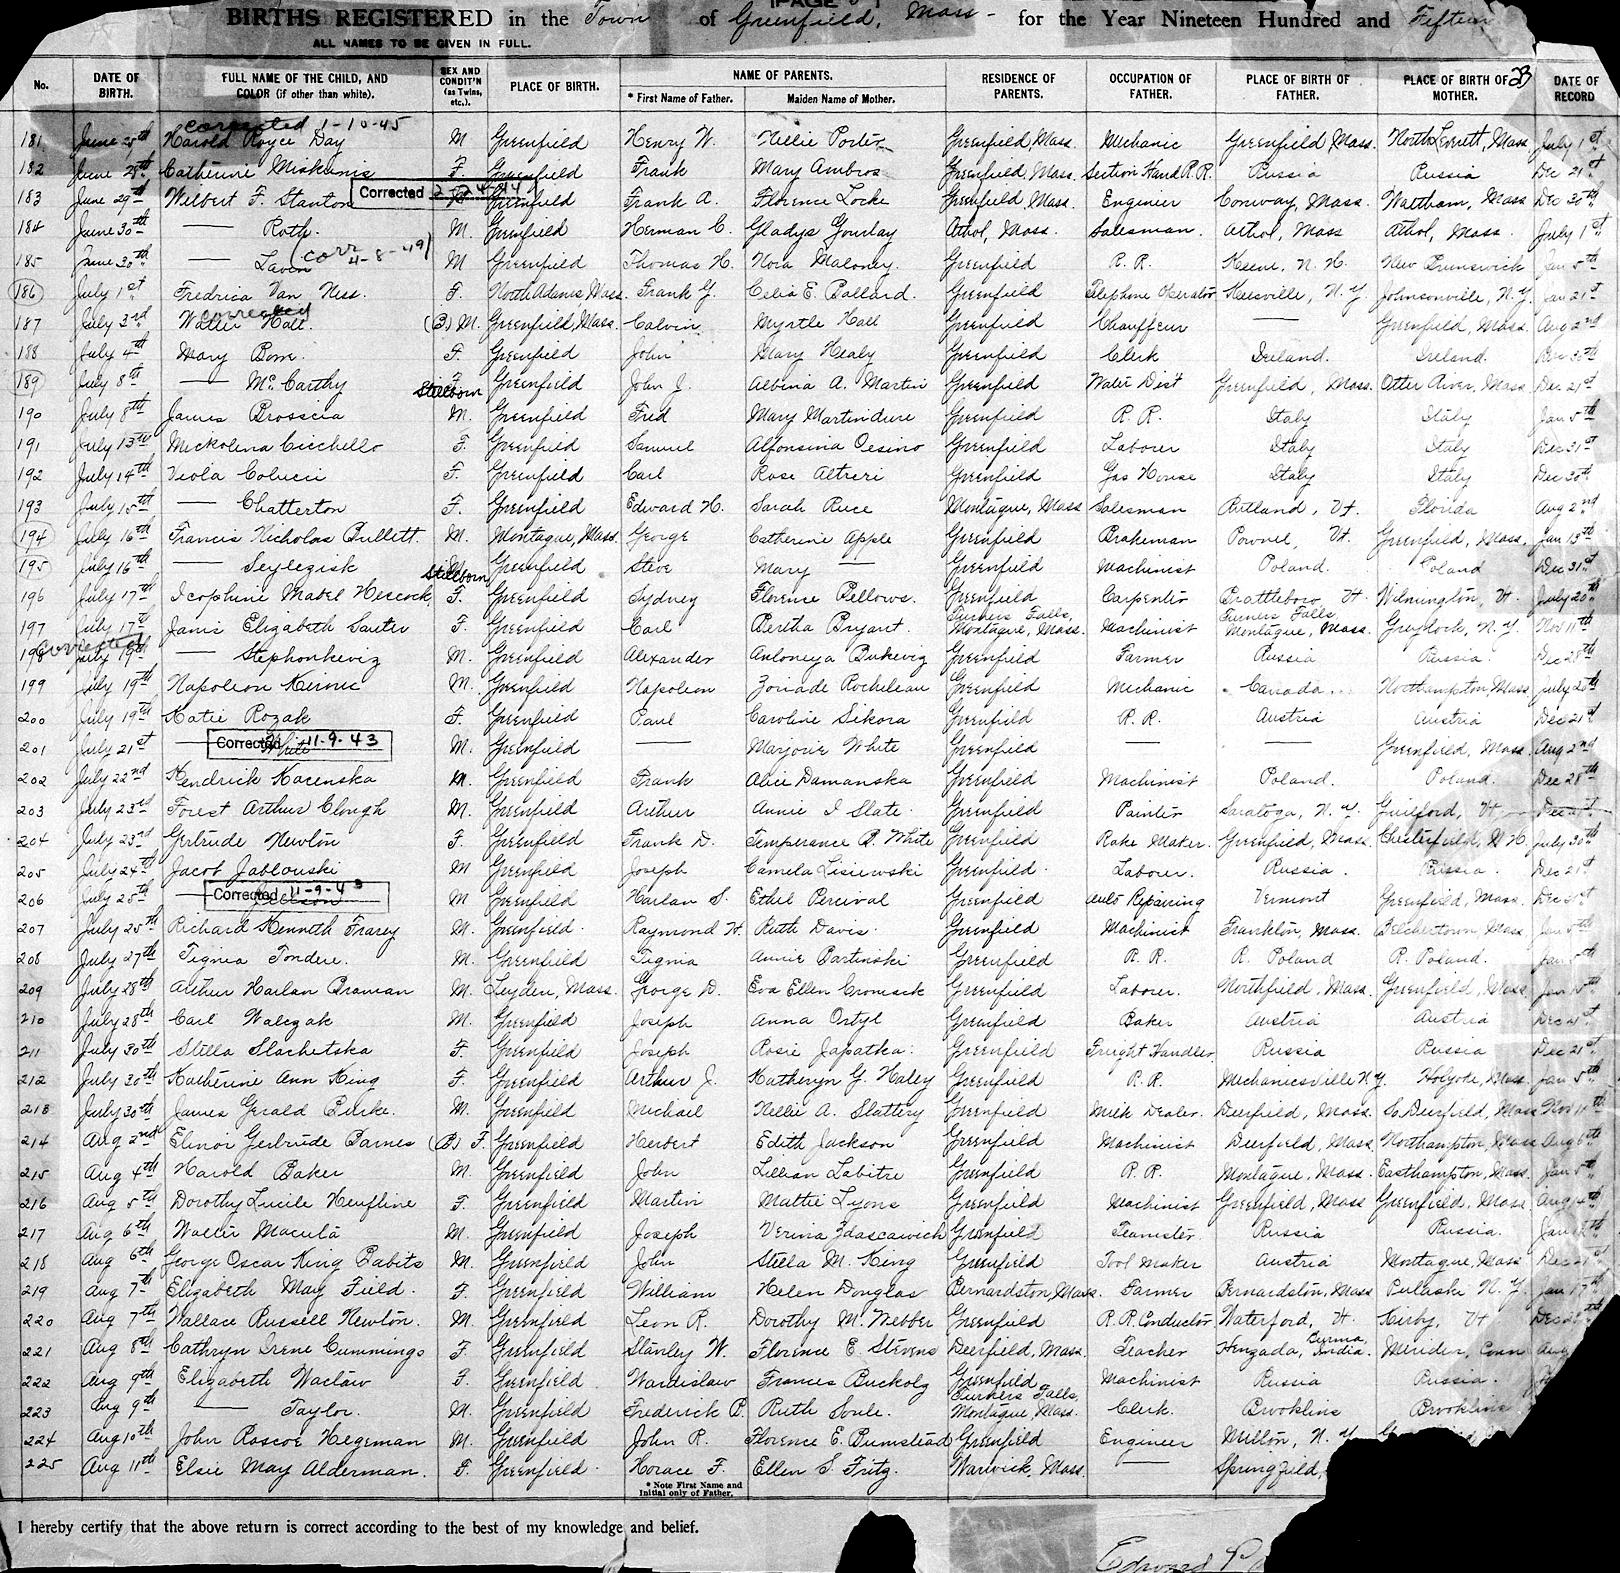 BIRTHS REGISTERED in the Town of Greenfield, Mass - for the Year Nineteen Hundred and Fifteen
ALL NAMES TO BE GIVEN IN FULL.
No. DATE OF BIRTH. FULL NAME OF THE CHILD, AND COLOR (if other than white). SEX AND CONDIT'N (as Twins, etc.). PLACE OF BIRTH. NAME OF PARENTS. * First Name of Father. Maiden Name of Mother. RESIDENCE OF PARENTS. OCCUPATION OF FATHER. PLACE OF BIRTH OF FATHER. PLACE OF BIRTH OF MOTHER. 23 DATE OF RECORD
corrected 1-10-45
181 June 28th Harold Royce Day M Greenfield Henry W. Nellie Porter Greenfield, Mass. Mechanic Greenfield Mass. North Leverett, Mass July 1st
182 June 28th Catherine Miskunis F. Greenfield Frank Mary Ambros Greenfield, Mass. Section Hand R.R. Russia Russia Dec 21st
183 June 29th Wilbert F. Stanton Corrected 2-24-44 Greenfield Frank A. Florence Locke Greenfield, Mass. Engineer Conway, Mass. Waltham, Mass Dec 30th
184 June 30th — Roth. M. Greenfield Herman C. Gladys Gourlay Athol, Mass. Salesman. Athol, Mass Athol, Mass. July 1st
185 June 30th — (corr 4-8-49) M Greenfield Thomas H. Nora Maloney. Greenfield R. R. Keene, N. H. New Brunswick Jan 5th
186 July 1st Fredrica Van Ness. F. North Adams, Mass. Frank G. Celia E. Ballard. Greenfield Telephone Operator Keesville, N. Y. Johnsonville, N. Y. Jan 21st
187 July 3rd Walter Hall. corrected (B) M. Greenfield, Mass. Calvin Myrtle Hall Greenfield Chauffeur — Greenfield, Mass. Aug 2nd
188 July 4th Mary Bom. F. Greenfield John Mary Healy Greenfield Clerk Ireland. Ireland. Dec 30th
189 July 8th — McCarthy Stillborn F Greenfield John J. Albina A. Martin Greenfield Water Dist Greenfield, Mass. Otter River, Mass. Dec 21st
190 July 8th James Brosscia M. Greenfield Fred Mary Martindure Greenfield R. R. Italy Italy Jan 5th
191 July 13th Mickolena Cicchello F. Greenfield Samuel Alfonsina Oesino Greenfield Laborer Italy Italy Dec 31st
192 July 14th Viola Colucci F. Greenfield Carl Rose Altieri Greenfield Gas House Italy Italy Dec 30th
193 July 15th — Chatterton F. Greenfield Edward H. Sarah Ruce Montague, Mass Salesman Rutland, Vt. Florida Aug 2nd
194 July 16th Francis Nicholas Bullett. M. Montague, Mass. George Catherine Apple Greenfield Brakeman Pownel, Vt. Greenfield, Mass. Jan 13th
195 July 16th — Seylegisk Stillborn M Greenfield Steve Mary — Greenfield Machinist Poland. Poland Dec 31st
196 July 17th Josephine Mabel Hescock. F. Greenfield Sydney Florence Bellows. Greenfield Carpenter Brattleboro Vt Wilmington, Vt. July 20th
197 July 17th Janis Elizabeth Sauter F. Greenfield Carl Bertha Bryant. Turners Falls, Montague, Mass. Machinist Turners Falls Montague, Mass. Greylock, N. Y. Nov 11th
Corrected
198 July 19th — Stephonkeviz M. Greenfield Alexander Antoneya Bukeviz Greenfield Farmer Russia Russia. Dec 28th
199 July 19th Napoleon M. Greenfield Napoleon Zoriade Rocheleau Greenfield Mechanic Canada. Northampton, Mass July 20th
200 July 19th Katie Rozak F. Greenfield Paul Caroline Sikora Greenfield R. R. Austria Austria Dec 21st
201 July 21st — White Corrected 11-9-43 M. Greenfield — Marjorie White Greenfield — — Greenfield, Mass. Aug 2nd
202 July 22nd Kendrick Kacenska M. Greenfield Frank Alice Damanska Greenfield Machinist Poland. Poland. Dec 28th
203 July 23rd Forest Arthur Clough M. Greenfield Arthur Annie I Slate Greenfield Painter Saratoga, N. Y. Guilford, Vt
204 July 23rd Gertrude Newton F. Greenfield Frank D. Temperance R. White Greenfield Rake Maker. Greenfield, Mass. Chesterfield, N H. July 30th
205 July 24th Jacob Jablonski M Greenfield Joseph Camela Lisiewski Greenfield. Laborer. Russia. Russia. Dec 21st
206 July 25th — Corrected 11-9-43 M Greenfield Harlan S. Ethel Percival Greenfield Auto Repairing Vermont Greenfield, Mass. Dec 21st
207 July 25th Richard Kenneth Frarey M. Greenfield. Raymond H. Ruth Davis. Greenfield Machinist Franklin, Mass. Belchertown, Mass. Jan 5th
208 July 27th Tignia Tondre. M. Greenfield Tignia Annie Partinski Greenfield R. R. R. Poland R. Poland. Jan 5th
209 July 28th Arthur Harlan Braman M. Leyden, Mass. George D. Eva Ellen Cromack Greenfield Laborer. Northfield, Mass. Greenfield, Mass. Jan 10th
210 July 28th Carl Walczak M. Greenfield Joseph Anna Ortyl Greenfield Baker Austria Austria Dec 21st
211 July 30th Stella Slachetska F. Greenfield Joseph Rosie Japatka. Greenfield Freight Handler Russia Russia Dec 21st
212 July 30th Katherine Ann King F. Greenfield Arthur J. Katheryn G. Haley Greenfield R. R. Mechanicsville N Y. Holyoke, Mass. Jan 5th
213 July 30th James Gerald Burke. M. Greenfield Michael Nellie A. Slattery Greenfield Milk Dealer. Deerfield, Mass. So Deerfield, Mass Nov 11th
214 Aug 2nd Elinor Gertrude Barnes (B) F. Greenfield Herbert Edith Jackson Greenfield Machinist Deerfield, Mass Northampton, Mass Aug 6th
215 Aug 4th Harold Baker M. Greenfield John Lillian Labitre Greenfield R. R. Montague, Mass. Easthampton, Mass. Jan 5th
216 Aug 5th Dorothy Lucile Heufline F. Greenfield Martin Mattie Lyons Greenfield Machinist Greenfield, Mass Greenfield, Mass. Aug
217 Aug 6th Walter Macula M. Greenfield Joseph Verina Zdascawich Greenfield Teamster Russia Russia. Jan
218 Aug 6th George Oscar King Babits M. Greenfield John Stella M. King Greenfield Tool Maker Austria Montague, Mass Dec 21st
219 Aug 7th Elizabeth May Field. F. Greenfield William Helen Douglas Bernardston, Mass. Farmer Bernardston, Mass Pulaski N. Y. Jan 17th
220 Aug 7th Wallace Russell Newton. M. Greenfield Leon R. Dorothy M. Webber Greenfield R. R. Conductor Waterford, Vt. Kirby, Vt Dec
221 Aug 8th Cathryn Irene Cummings F. Greenfield Stanley W. Florence E. Stevens Deerfield, Mass. Teacher Henzada, Burma, India. Meriden, Conn Aug
222 Aug 9th Elizabeth Waclaw F. Greenfield. Wardislaw Frances Buckolz Greenfield Machinist Russia Russia.
223 Aug 9th — Taylor. M. Greenfield Frederick P. Ruth Soule. Turners Falls, Montague, Mass. Clerk. Brookline Brookline
224 Aug 10th John Roscoe Hegeman M. Greenfield John R. Florence E. Bumstead Greenfield Engineer Millton, N. Y.
225 Aug 11th Elsie May Alderman. F. Greenfield Horace F. Ellen S. Fritz. Warwick, Mass. — Springfield,
* Note First Name and Initial only of Father.
I hereby certify that the above return is correct according to the best of my knowledge and belief.
Edward P.